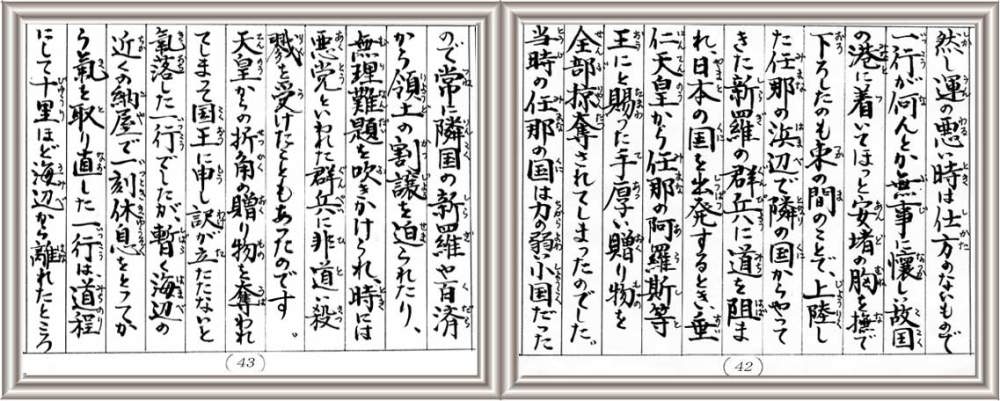 然し運の悪い時は仕方のないもので
一行が何んとか無事に懐しい故国
の港に着いてほっと安堵の胸を撫で
下ろしたのも束の間のことで、上陸し
た任那の浜辺で隣の国からやって
きた新羅の群兵に道を阻ま
れ、日本の国を出発するとき、垂
仁天皇から任那の阿羅斯等
王にと賜った手厚い贈り物を
全部掠奪されてしまったのでした。
当時の任那の国は力の弱い小国だった
(42)
ので常に隣国の新羅や百済
から領土の割譲を迫られたり、
無理難題を吹きかけられ、時には
悪党といわれた群兵に非道い殺
戮を受けたこともあったのです。
天皇からの折角の贈り物を奪われ
てしまって国王に申し訳が立たないと
氣落した一行でしたが、暫く海辺の
近くの納屋で一刻休息をとってか
ら氣を取り直した一行は道程
にして十里ほど海辺から離れたところ
(43)